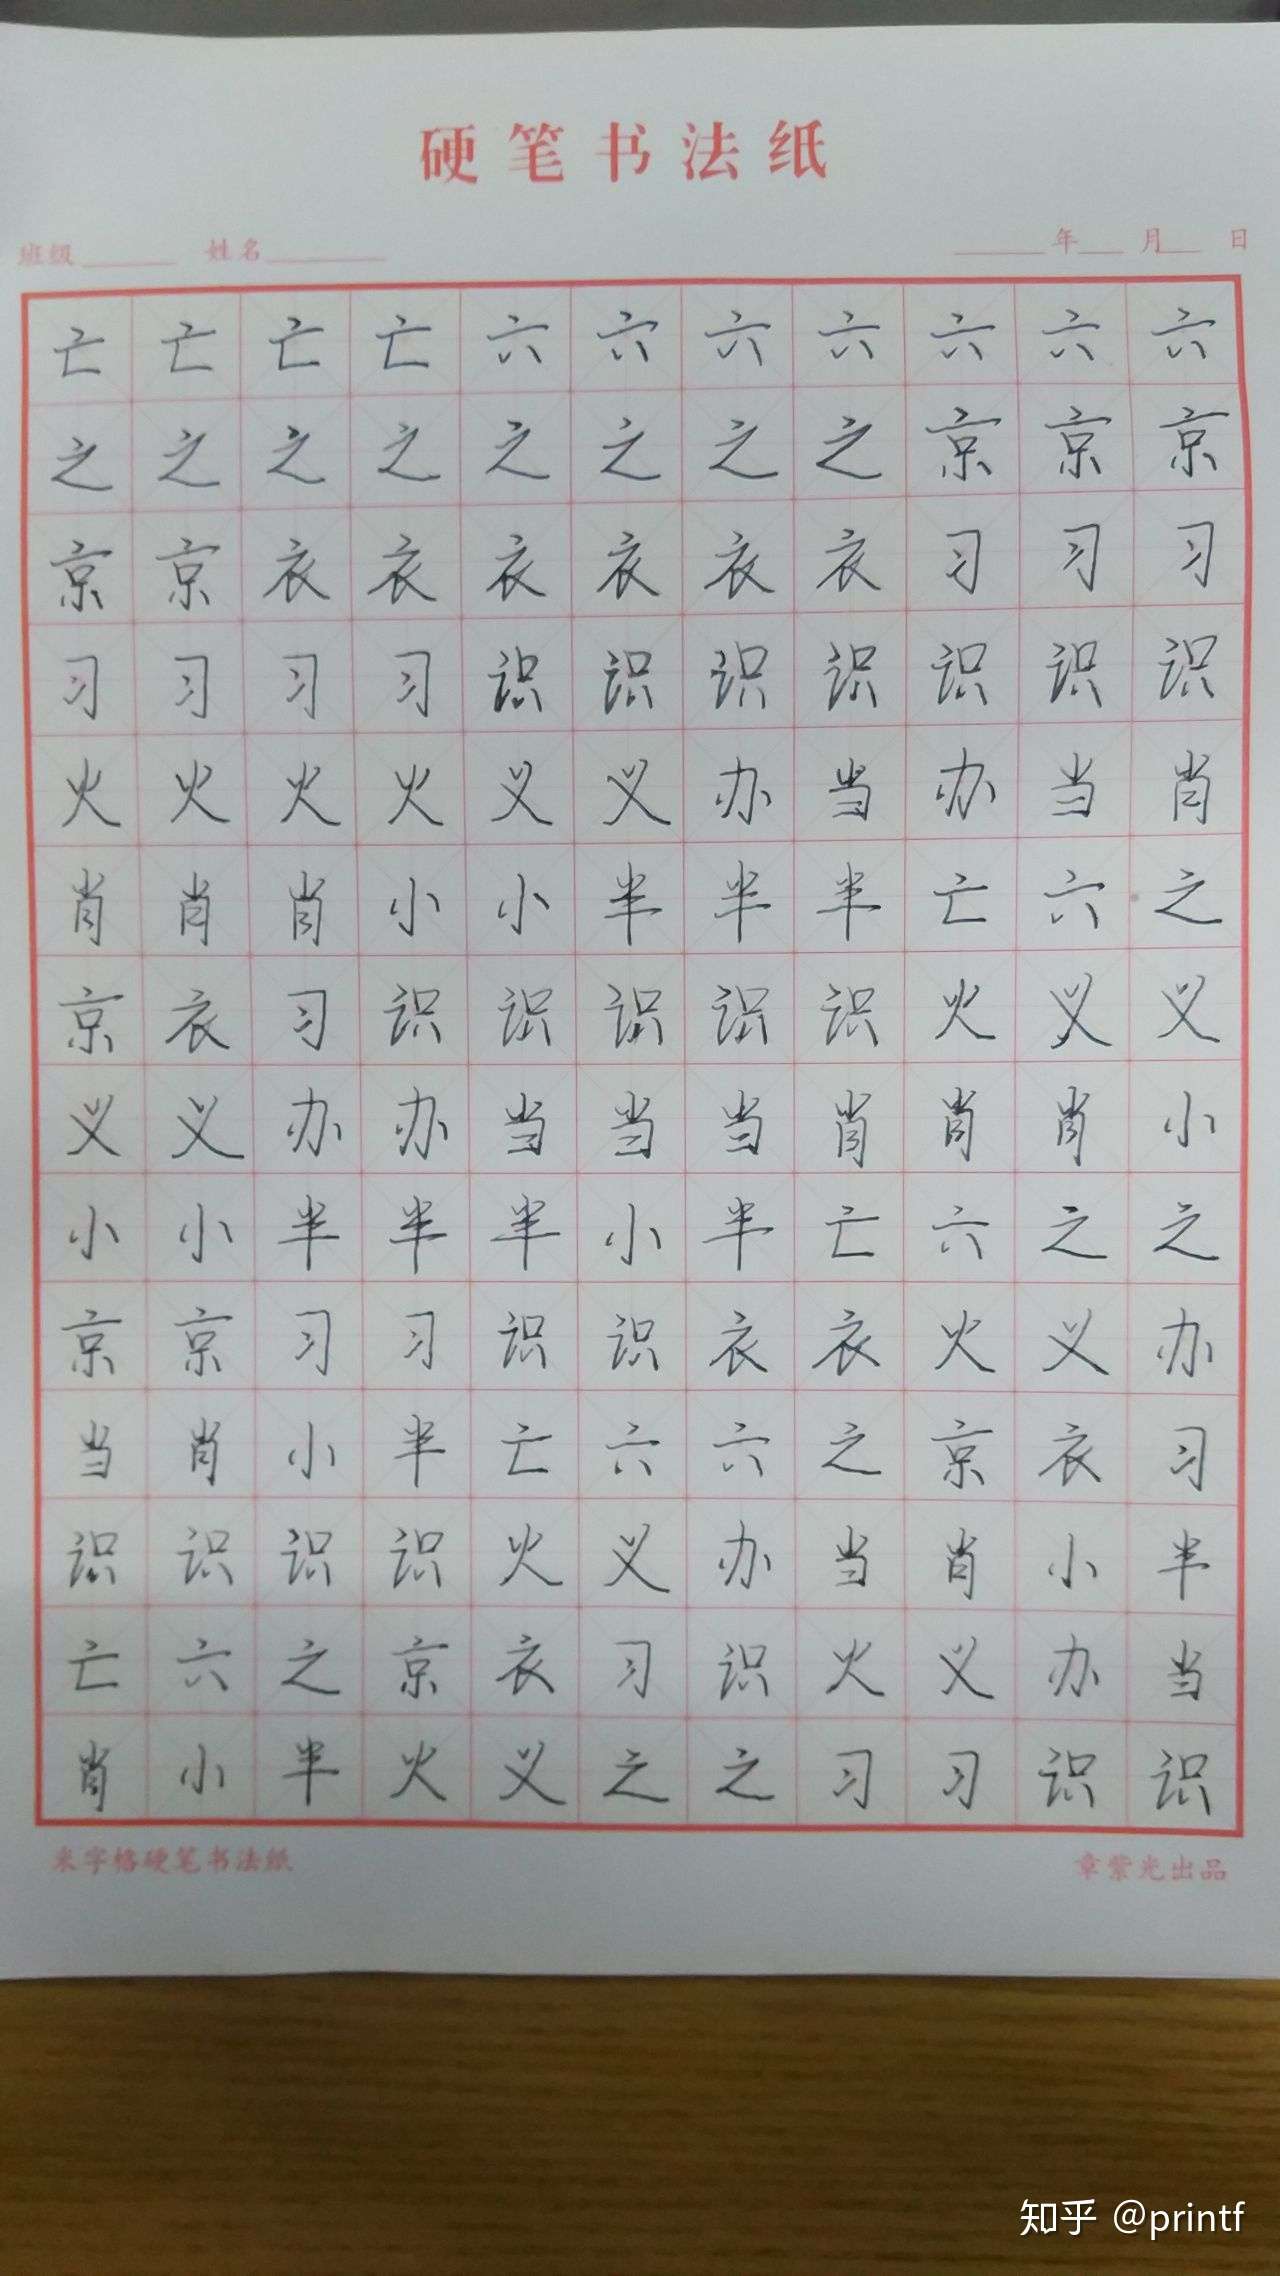 硬笔书法纸
班级 姓名 年 月 日
亡亡亡亡六六六六六六六
之之之之之之之之京京京
京京衣衣衣衣衣衣习习习
习习习习识识识识识识识
火火火火义义办当办当肖
肖肖肖小小半半半亡六之
京衣习识识识识识火义义
义义办办当当当肖肖肖小
小小半半半小半亡六之之
京京习习识识衣衣火义办
当肖小半亡六六之京衣习
识识识识火义办当肖小半
亡六之京衣习识火义办当
肖小半火义之之习习识识
米字格硬笔书法纸 章紫光出品
知乎 @printf